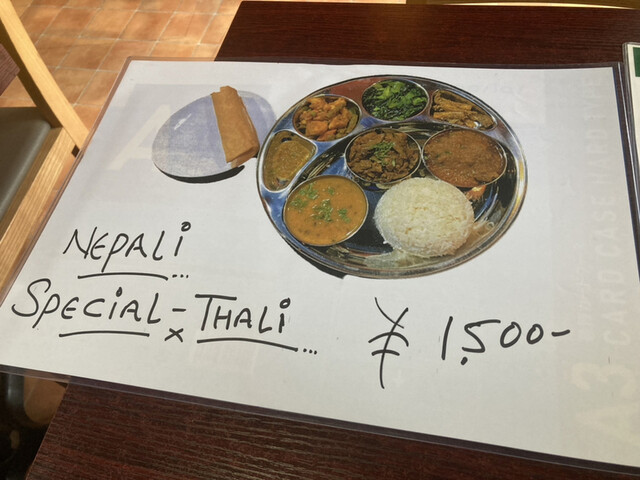 NEPALi
SPECiAL-THALi
¥ 1,500-
A3
CARD CASE